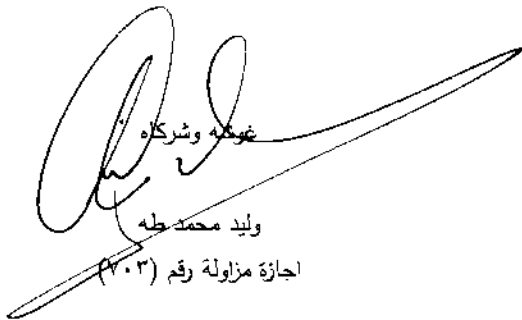 غوشه وشركاه
وليد محمد طه
اجازة مزاولة رقم (٧٠٣)